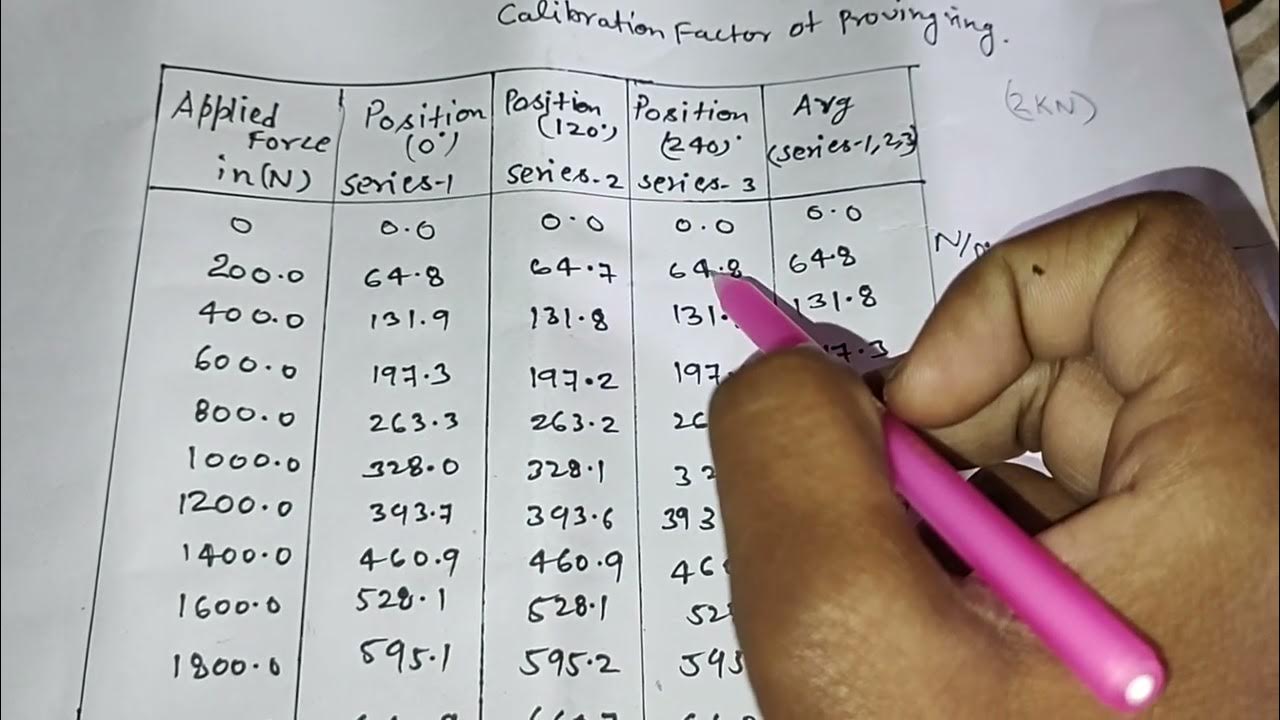 Calibration Factor of Proving ring.
(2KN)
Applied Force in (N) Position (0°) series-1 Position (120°) series-2 Position (240)° series-3 Avg (series-1,2,3)
0 0.0 0.0 0.0 0.0
200.0 64.8 64.7 64.8 64.8
400.0 131.9 131.8 131. 131.8
600.0 197.3 197.2 197 7.3
800.0 263.3 263.2 26
1000.0 328.0 328.1 32
1200.0 393.7 393.6 393
1400.0 460.9 460.9 46
1600.0 528.1 528.1 52
1800.0 595.1 595.2 595